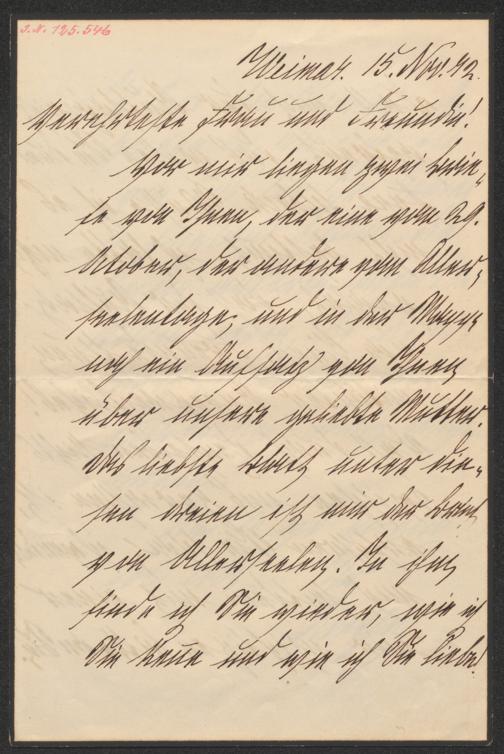 J.N. 125.546
Weimar. 15. Nov. 92.
Verehrteste Frau und Freundin!
Vor mir liegen zwei Brie-
fe von Ihnen, der eine vom 29.
Oktober, der andere vom Aller-
seelentage, und in der Mappe
noch ein Aufsatz von Ihnen
über unsere geliebte Mutter.
Das liebste Blatt unter die-
sen dreien ist mir der Brief
von Allerseelen. In ihm
finde ich Sie wieder, wie ich
Sie kenne und wie ich Sie liebe